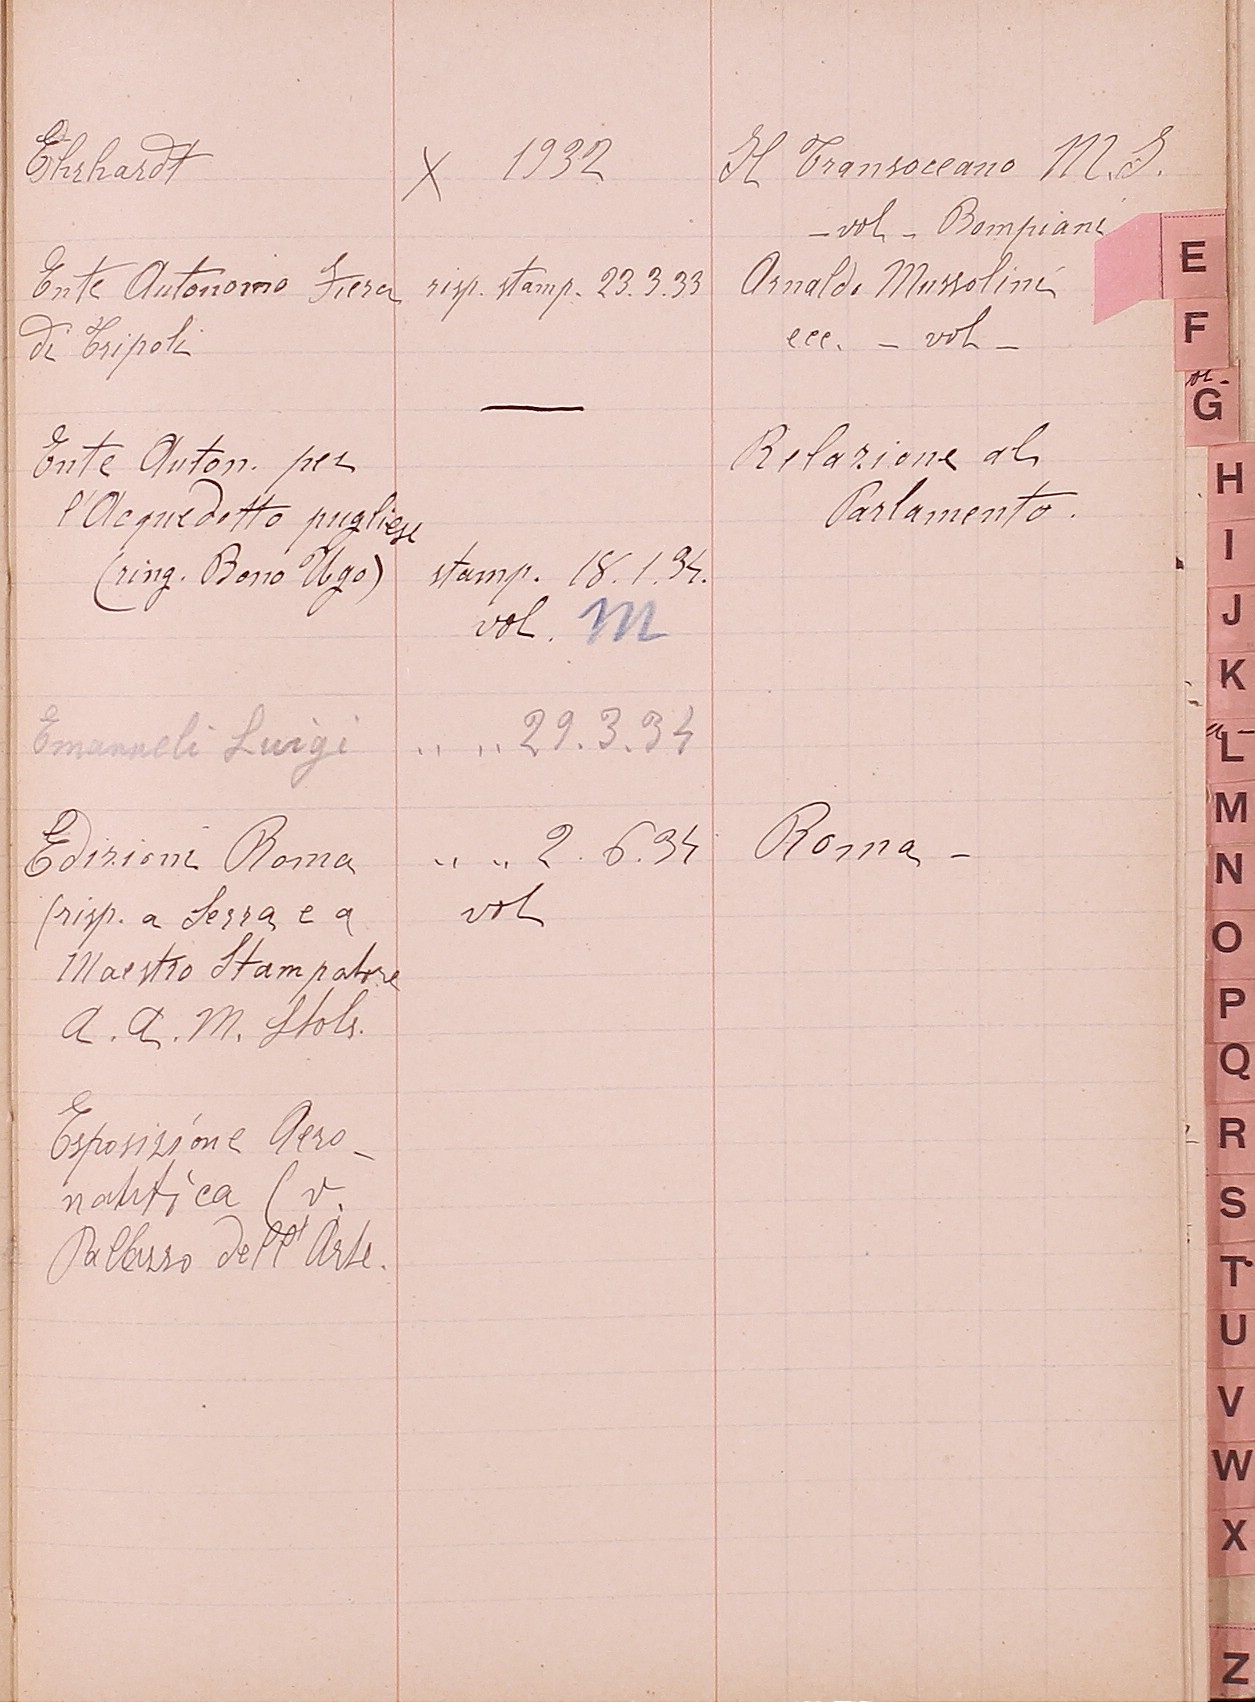 Ehrhardt X 1932 Il Transoceano M.S.
- vol - Bompiani
Ente Autonomo Fiera risp. stamp. 23.3.33 Arnaldo Mussolini
di Tripoli ecc. - vol -
Ente Auton. per Relazione al
l'Acquedotto pugliese Parlamento.
(ring. Bono Ugo) stamp. 18.1.34.
vol. M
Emanueli Luigi " " 29.3.34
Edizioni Roma " " 2.6.34 Roma -
(risp. a Serra e a vol
Maestro Stampatore
A.A.M. Stols.
Esposizione Aero-
nautica (v.
Palazzo dell'Arte.
E
F
G
H
I
J
K
L
M
N
O
P
Q
R
S
T
U
V
W
X
Z